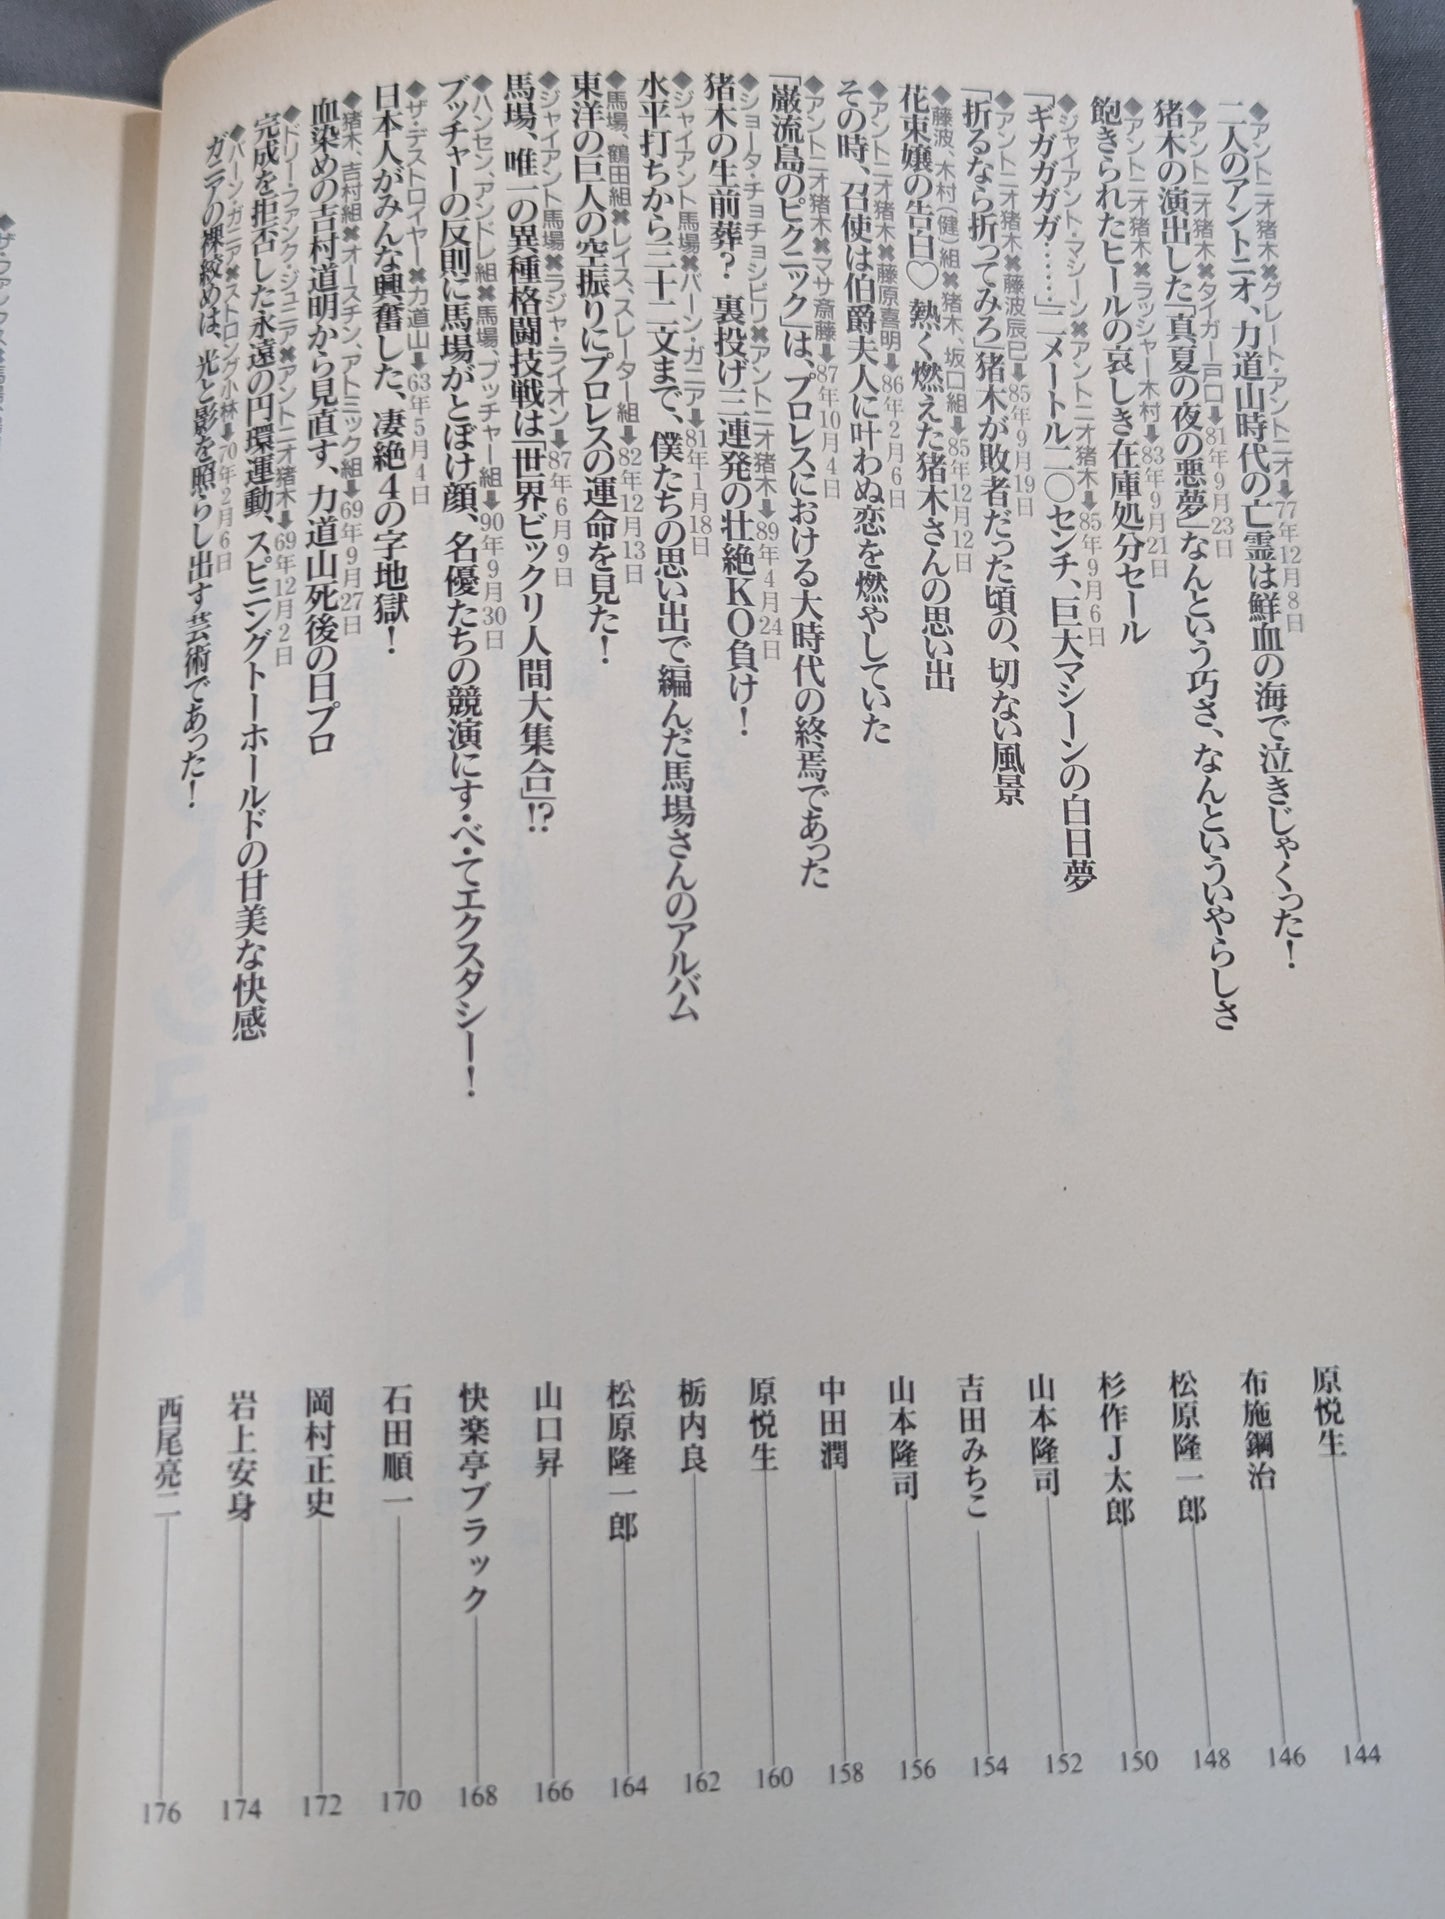 ◆アントニオ猪木✖グレート・アントニオ➡77年12月8日
二人のアントニオ、力道山時代の亡霊は鮮血の海で泣きじゃくった！
原悦生
144
◆アントニオ猪木✖タイガー戸口➡81年9月23日
猪木の演出した「真夏の夜の悪夢」なんという巧さ、なんといういやらしさ
布施鋼治
146
◆アントニオ猪木✖ラッシャー木村➡83年9月21日
飽きられたヒールの哀しき在庫処分セール
松原隆一郎
148
◆ジャイアント・マシーン✖アントニオ猪木➡85年9月6日
「ギガガガガ‥‥」二メートル二〇センチ、巨大マシーンの白日夢
杉作J太郎
150
◆アントニオ猪木✖藤波辰巳➡85年9月19日
「折るなら折ってみろ」猪木が敗者だった頃の、切ない風景
山本隆司
152
◆藤波、木村（健）組✖猪木、坂口組➡85年12月12日
花束嬢の告白♡ 熱く燃えた猪木さんの思い出
吉田みちこ
154
◆アントニオ猪木✖藤原喜明➡86年2月6日
その時、召使は伯爵夫人に叶わぬ恋を燃やしていた
山本隆司
156
◆アントニオ猪木✖マサ斎藤➡87年10月4日
「巌流島のピクニック」は、プロレスにおける大時代の終焉であった
中田潤
158
◆ショータ・チョチョシビリ✖アントニオ猪木➡89年4月24日
猪木の生前葬？ 裏投げ三連発の壮絶KO負け！
原悦生
160
◆ジャイアント馬場✖バーン・ガニア➡81年1月18日
水平打ちから三十二文まで、僕たちの思い出で編んだ馬場さんのアルバム
栃内良
162
◆馬場、鶴田組✖レイス、スレーター組➡82年12月13日
東洋の巨人の空振りにプロレスの運命を見た！
松原隆一郎
164
◆ジャイアント馬場✖ラジャ・ライオン➡87年6月9日
馬場、唯一の異種格闘技戦は「世界ビックリ人間大集合」!?
山口昇
166
◆ハンセン、アンドレ組✖馬場、ブッチャー組➡90年9月30日
ブッチャーの反則に馬場がとぼけ顔、名優たちの競演にす・べ・てエクスタシー！
快楽亭ブラック
168
◆ザ・デストロイヤー✖力道山➡63年5月4日
日本人がみんな興奮した、凄絶4の字地獄！
石田順一
170
◆猪木、吉村組✖オースチン、アトミック組➡69年9月27日
血染めの吉村道明から見直す、力道山死後の日プロ
岡村正史
172
◆ドリー・ファンク・ジュニア✖アントニオ猪木➡69年12月2日
完成を拒否した永遠の円環運動、スピニングトーホールドの甘美な快感
岩上安身
174
◆バーン・ガニア✖ストロング小林➡70年2月6日
ガニアの裸絞めは、光と影を照らし出す芸術であった！
西尾亮二
176